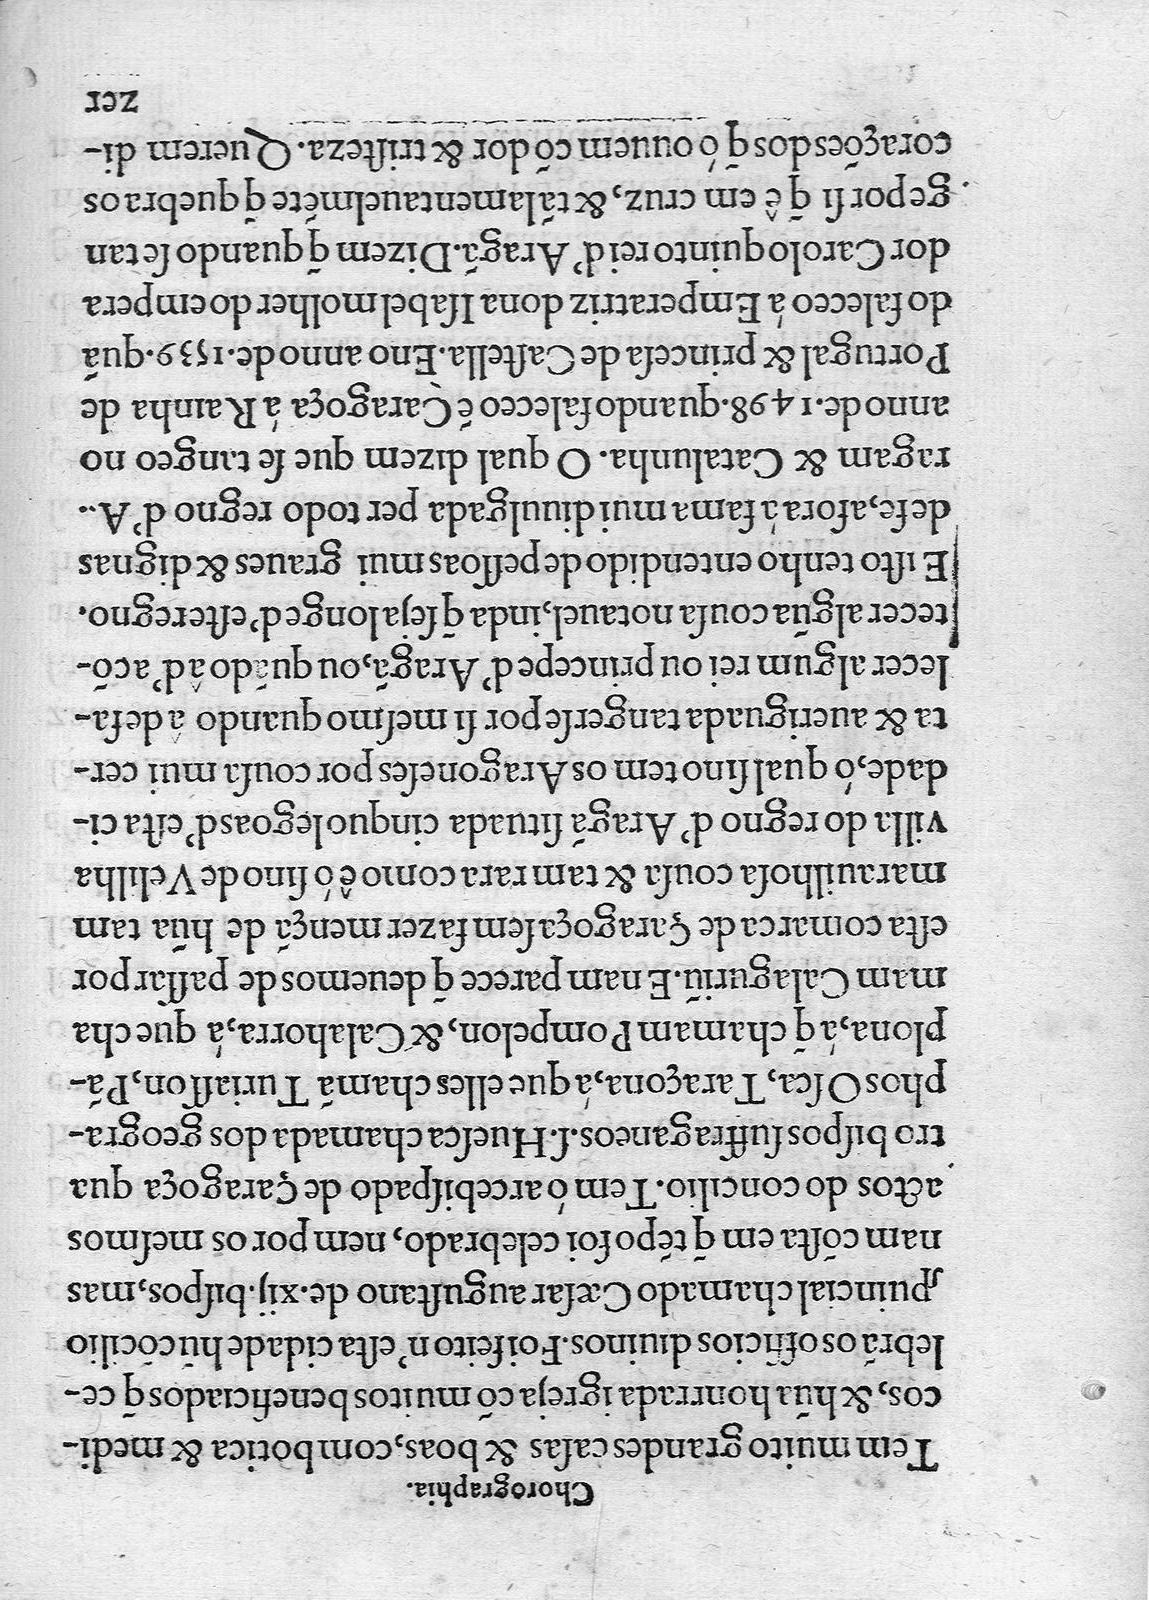 Chorographia.
Tem muito grandes casas & boas, com botica & medi-
cos, & hũa honrrada igreja cõ muitos beneficiados q̃ ce-
lebrã os officios diuinos. Foi feito n'esta cidade hũ cõcilio
ꝓuincial chamado Cæsaraugustano de .xij. bispos, mas
nam cõsta em q̃ tẽpo foi celebrado, nem por os mesmos
actos do concilio. Tem ó arcebispado de Çaragoça qua
tro bispos suffraganeos. s. Huesca chamada dos geogra-
phos Osca, Taraçona, á que elles chamã Turiasson, Pã-
plona, á q̃ chamam Pompelon, & Calahorra, á que cha
mam Calaguriũ. E nam parece q̃ deuemos de passar por
esta comarca de Çaragoça sem fazer mençã de hũa tam
marauilhosa cousa & tam rara como ê ó sino de Velilha
villa do regno d' Aragã situada cinquo legoas d'esta ci-
dade, ó qual sino tem os Aragoneses por cousa mui cer-
ta & aueriguada tangerse por si mesmo quando â de fa-
lecer algum rei ou princepe d' Aragã, ou quãdo â d' acõ-
tecer algũa cousa notauel, inda q̃ seja longe d'este regno.
E isto tenho entendido de pessoas mui graues & dignas
de fe, afora á fama mui diuulgada per todo regno d' A-
ragam & Catalunha. O qual dizem que se tangeo no
anno de .1498. quando faleceo ẽ Çaragoça á Rainha de
Portugal & princesa de Castella. E no anno de .1539. quã
do faleceo á Emperatriz dona Isabel molher do empera
dor Carolo quinto rei d' Aragã. Dizem q̃ quando se tan
ge por si q̃ ê em cruz, & tã lamentauelmẽte q̃ quebra os
corações dos q̃ ó ouuem cõ dor & tristeza. Querem di-
zer